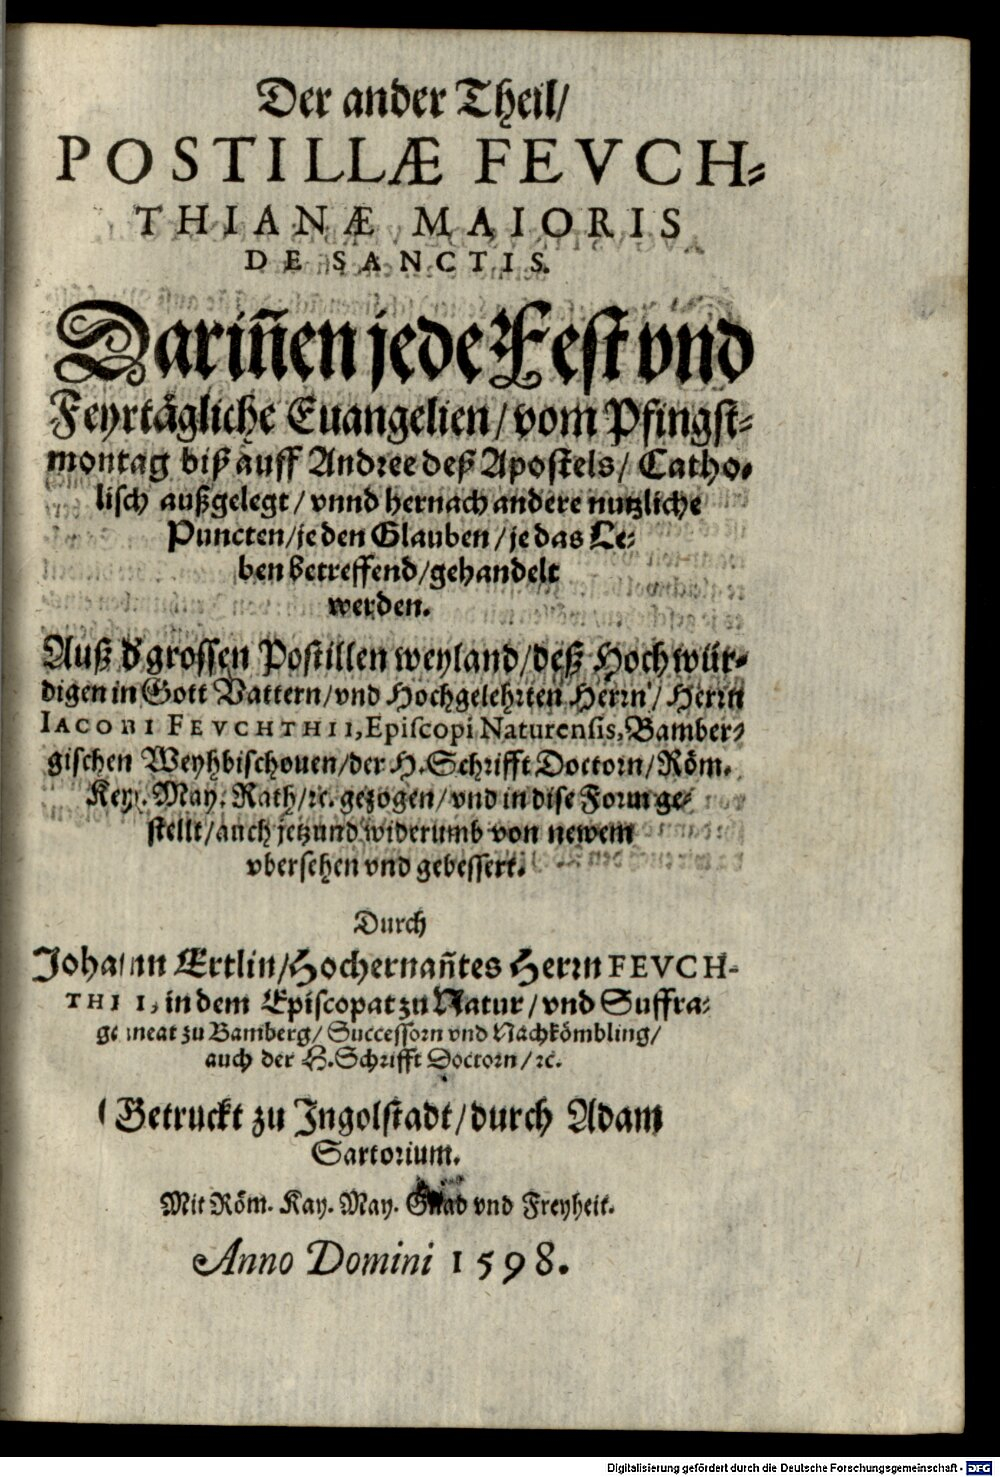 Der ander Theil/
POSTILLÆ FEVCH⸗
THIANÆ MAIORIS
DE SANCTIS.
Dariñen jede Fest vnd
Feyrtägliche Euangelien/ vom Pfingst⸗
montag biß auff Andree deß Apostels/ Catho⸗
lisch außgelegt/ vnnd hernach andere nutzliche
Puncten/ je den Glauben/ je das Le⸗
ben betreffend/ gehandelt
werden.
Auß d' grossen Postillen weyland/ deß Hochwür⸗
digen in Gott Vattern/ vnd Hochgelehrten Herrn/ Herrn
IACOBI FEVCHTHII, Episcopi Naturensis, Bamber⸗
gischen Weyhbischouen/ der H. Schrifft Doctorn/ Röm.
Key. May. Rath/ ꝛc. gezogen/ vnd in dise Form ge⸗
stellt/ auch jetzund widerumb von newem
vbersehen vnd gebessert.
Durch
Johann Ertlin/ Hochernañtes Herrn FEVCH-
THII, in dem Episcopat zu Natur/ vnd Suffra⸗
ganeat zu Bamberg/ Successorn vnd Nachkömbling/
auch der H. Schrifft Doctorn/ ꝛc.
Getruckt zu Ingolstadt/ durch Adam
Sartorium.
Mit Röm. Kay. May. Gnad vnd Freyheit.
Anno Domini 1598.
Digitalisierung gefördert durch die Deutsche Forschungsgemeinschaft - DFG